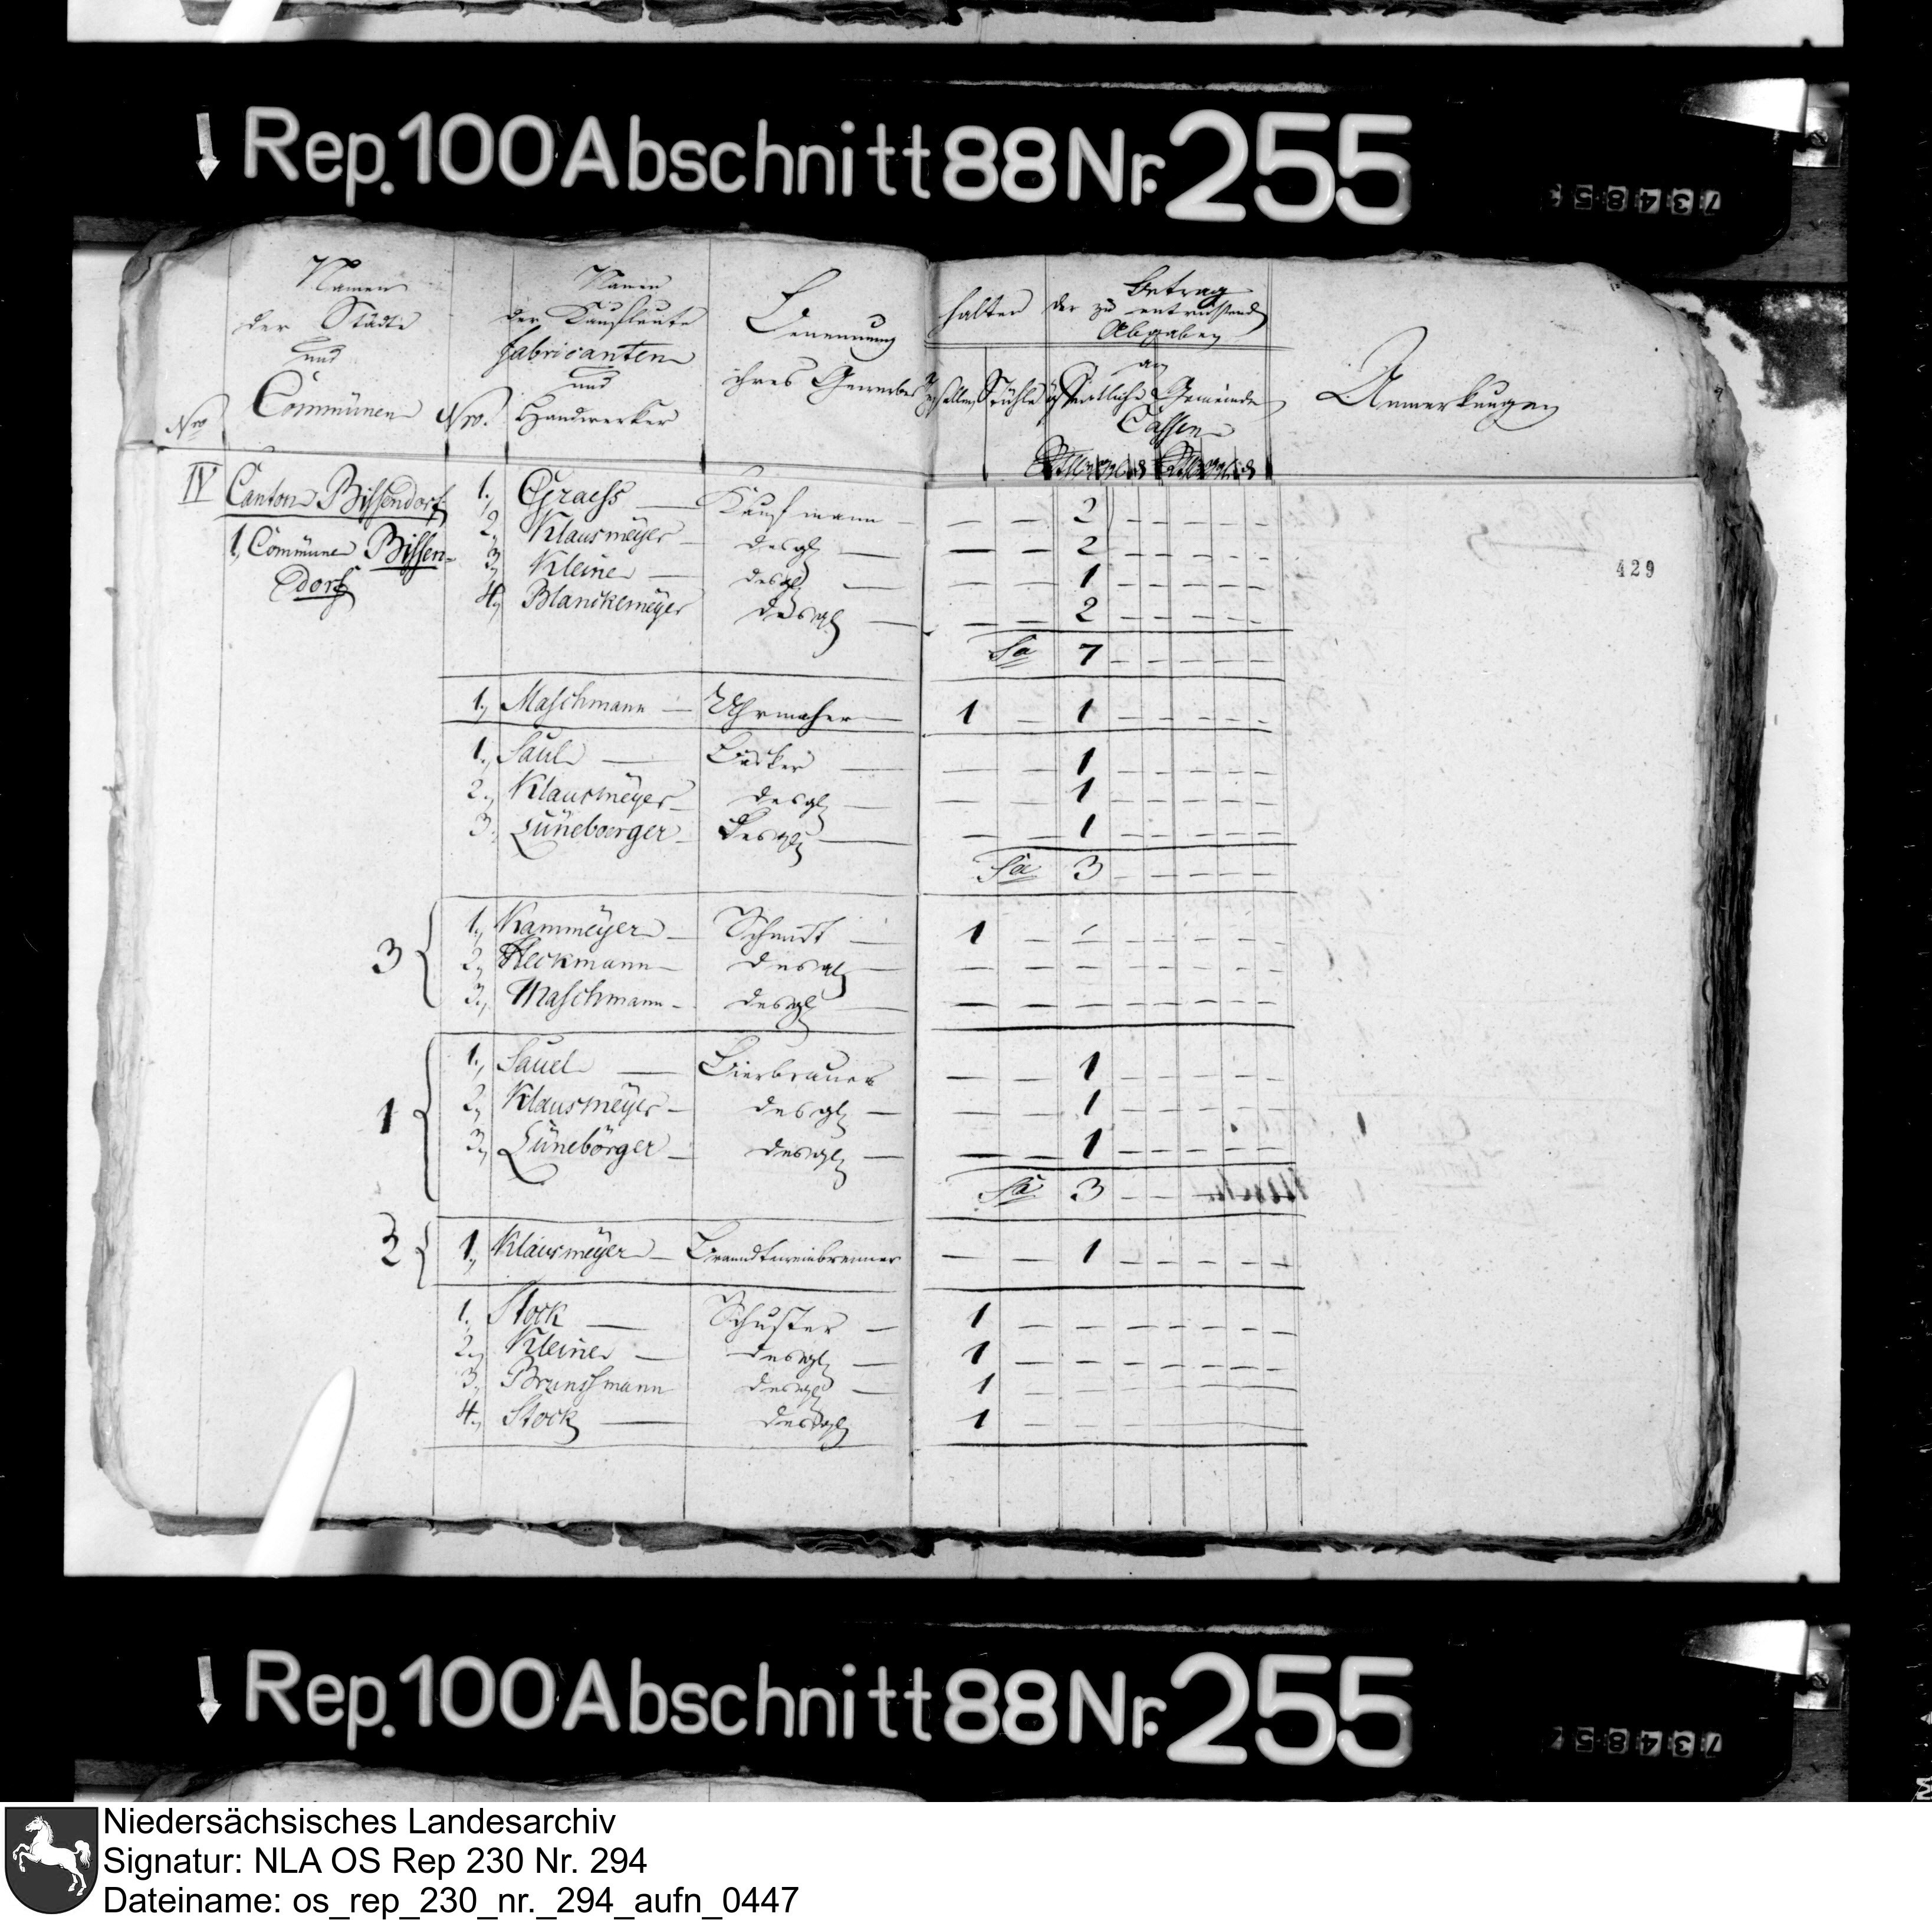 Rep. 100 Abschnitt 88 Nr. 255
733485
Namen der Städte und Communen
Nro
Nro.
Namen der Kaufleute fabricanten und Handwerker
Benennung ihres Gewerbes
halten
Gesellen
Stühle
Betrag der zu entrichtenden Abgaben
an
öffentliche
Gemeinde
Cassen
Anmerkungen
429
IV Canton Bissendorf
1, Commune Bissendorf
1., Graess — Kaufmann — — — 2 — — — — —
2, Klausmeyer — desgl — — — 2 — — — — —
3, Kleine — desgl — — — 1 — — — — —
4, Blanckemeyer desgl — — — 2 — — — — —
Sa 7 — — — — —
1, Maschmann — Uhrmaher — 1 — 1 — — — — —
1., Saul — Bäcker — — — 1 — — — — —
2., Klausmeyer — desgl — — — 1 — — — — —
3. Lüneboerger — Desgl — — — 1 — — — — —
Sa 3 — — — — —
3
1, Kammeyer — Schmidt — 1 — — — — — — —
2, Heckmann — desgl — — — — — — — — —
3., Maschmann — desgl — — — — — — — — —
1
1., Sauel — Bierbrauer — — 1 — — — — —
2, Klausmeyer — desgl — — — 1 — — — — —
3, Lünebörger — desgl — — — 1 — — — — —
Sa 3 — —
2
1, Klausmeyer — Branndtweinbrenner — — 1 — — — — —
1., Stock — Schuster — 1 — — — — — — —
2., Kleine — desgl — 1 — — — — — — —
3, Brunsmann desgl — 1 — — — — — — —
4., Stock — desgl 1 — — — — — — —
Rep. 100 Abschnitt 88 Nr. 255
733485
Niedersächsisches Landesarchiv
Signatur: NLA OS Rep 230 Nr. 294
Dateiname: os_rep_230_nr._294_aufn_0447